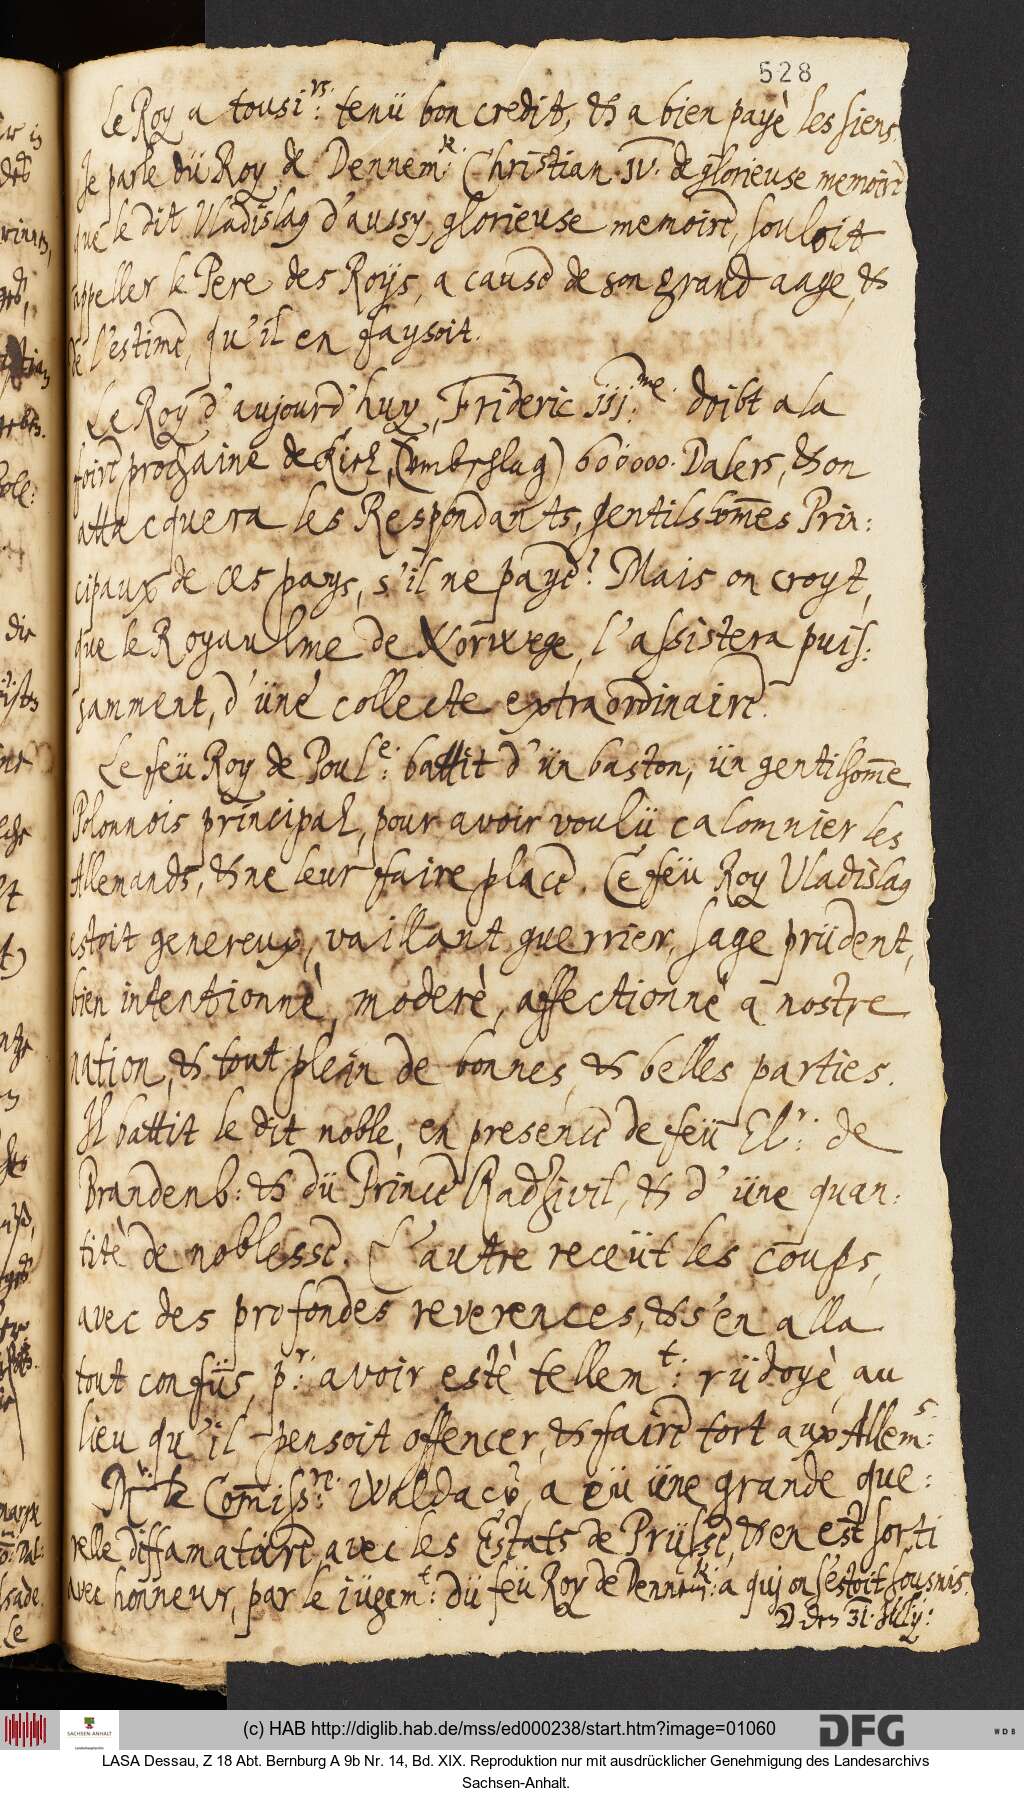 528
Le Roy a tousi:rs tenü bon credit, & a bien payè les siens,
Je parle dü Roy de Dennem:k Christian IV. de glorieuse memoire
que le dit Vladislag d'aussy, glorieuse memoire, souloit
appeller le Pere des Roys, a cause de son grand aage, &
de l'estime, qu'il en faysoit.
Le Roy d'aujourd'huy, Frideric III.me doibt a la
foire prochaine de Kiel, (ümbschlag) 600000. Dalers, & on
attacquera les Respondants, gentilshom̃es Prin:
cipaux de ces pays, s'il ne paye? Mais on croyt,
que le Royaulme de Norwege, l'assistera puis:
samment, d'üne collecte extraordinaire.
Le feü Roy de Poul:e battit d'ün baston, ün gentilhom̃e
Polonnois principal, pour avoir voulü calomnier les
Allemands, & ne leur faire place. Ce feü Roy Vladislag
estoit genereux, vaillant guerrier, sage prüdent,
bien intentionnè, moderè, affectionnè a nostre
nation, & tout plein de bonnes, & belles parties.
Il battit le dit noble, en presence de feü El:r de
Brandenb: & dü Prince Radzivil, & d'üne quan:
titè de noblesse. L'autre receüt les coups,
avec des profondes reverences, & s'en alla
tout confüs, p:r avoir estè tellem:t rüdoyè, au
lieu qu'il pensoit offencer, & faire tort aux Allem:s
M:r le Com̃iss:re Waldaw, a eü üne grande que:
relle diffamatoire, avec les Estats de Prüsse, & en est sorti
avec honneur, par le jügem:t dü feü Roy de Dennem:k a quj on s'estoit sousmis.
den 31. Jüly:
(c) HAB http://diglib.hab.de/mss/ed000238/start.htm?image=01060
SACHSEN-ANHALT
DFG
WDB
LASA Dessau, Z 18 Abt. Bernburg A 9b Nr. 14, Bd. XIX. Reproduktion nur mit ausdrücklicher Genehmigung des Landesarchivs
Sachsen-Anhalt.